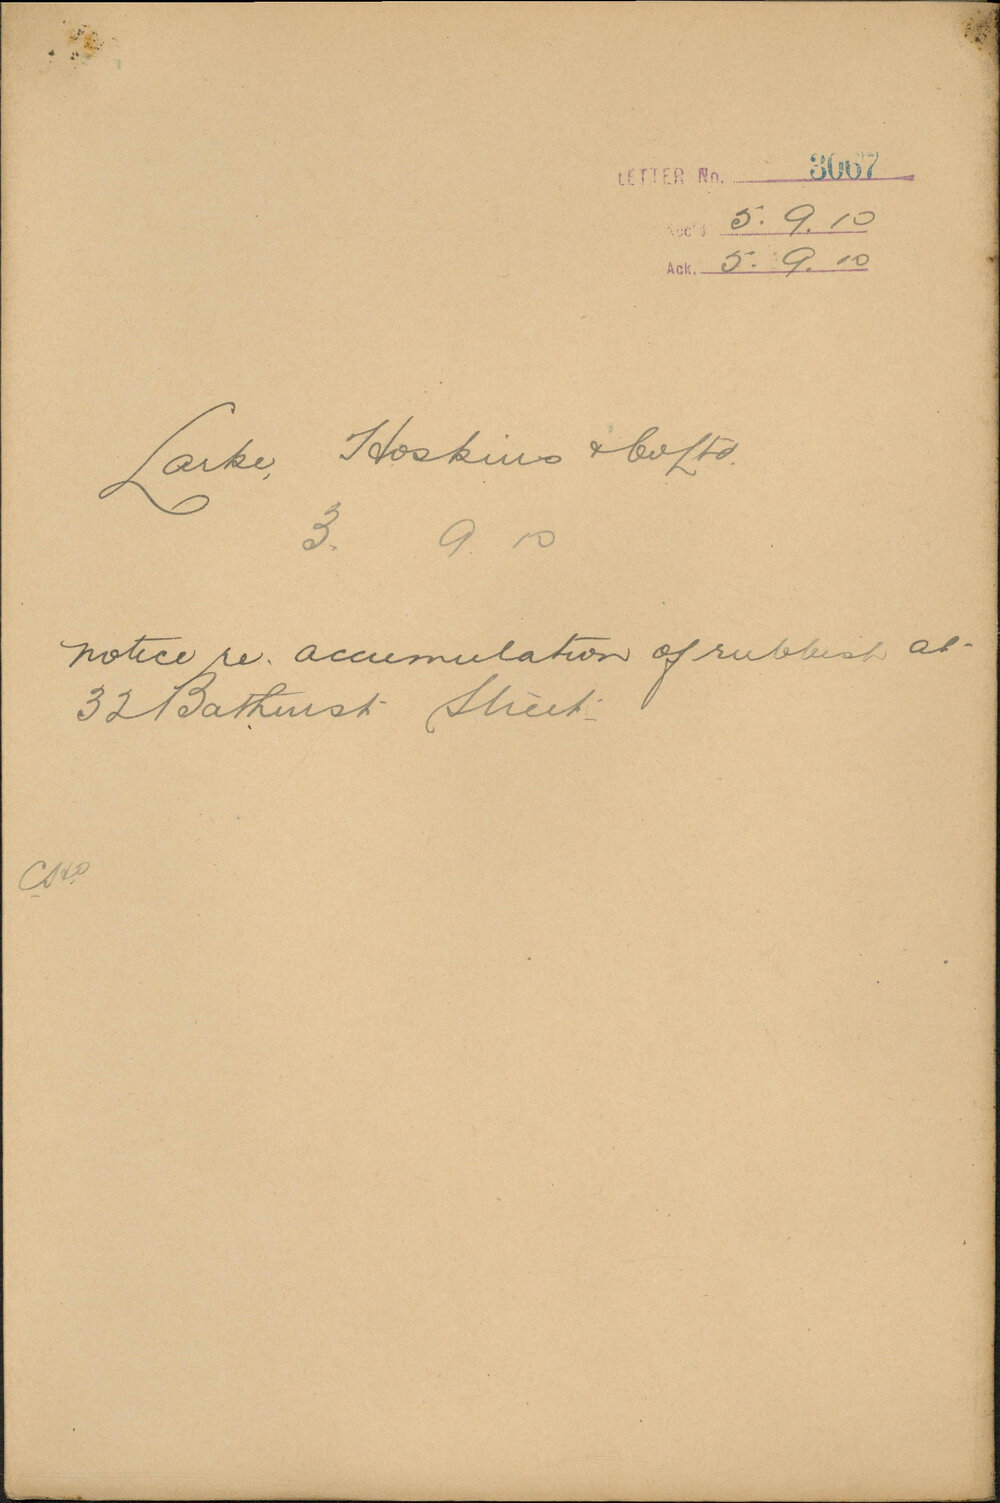 LETTER No. 3067
Rec'd 5. 9. 10
Ack. 5. 9. 10
Larke, Hoskins & Co Ltd.
3. 9 10
notice re. accumulation of rubbish at
32 Bathurst Street